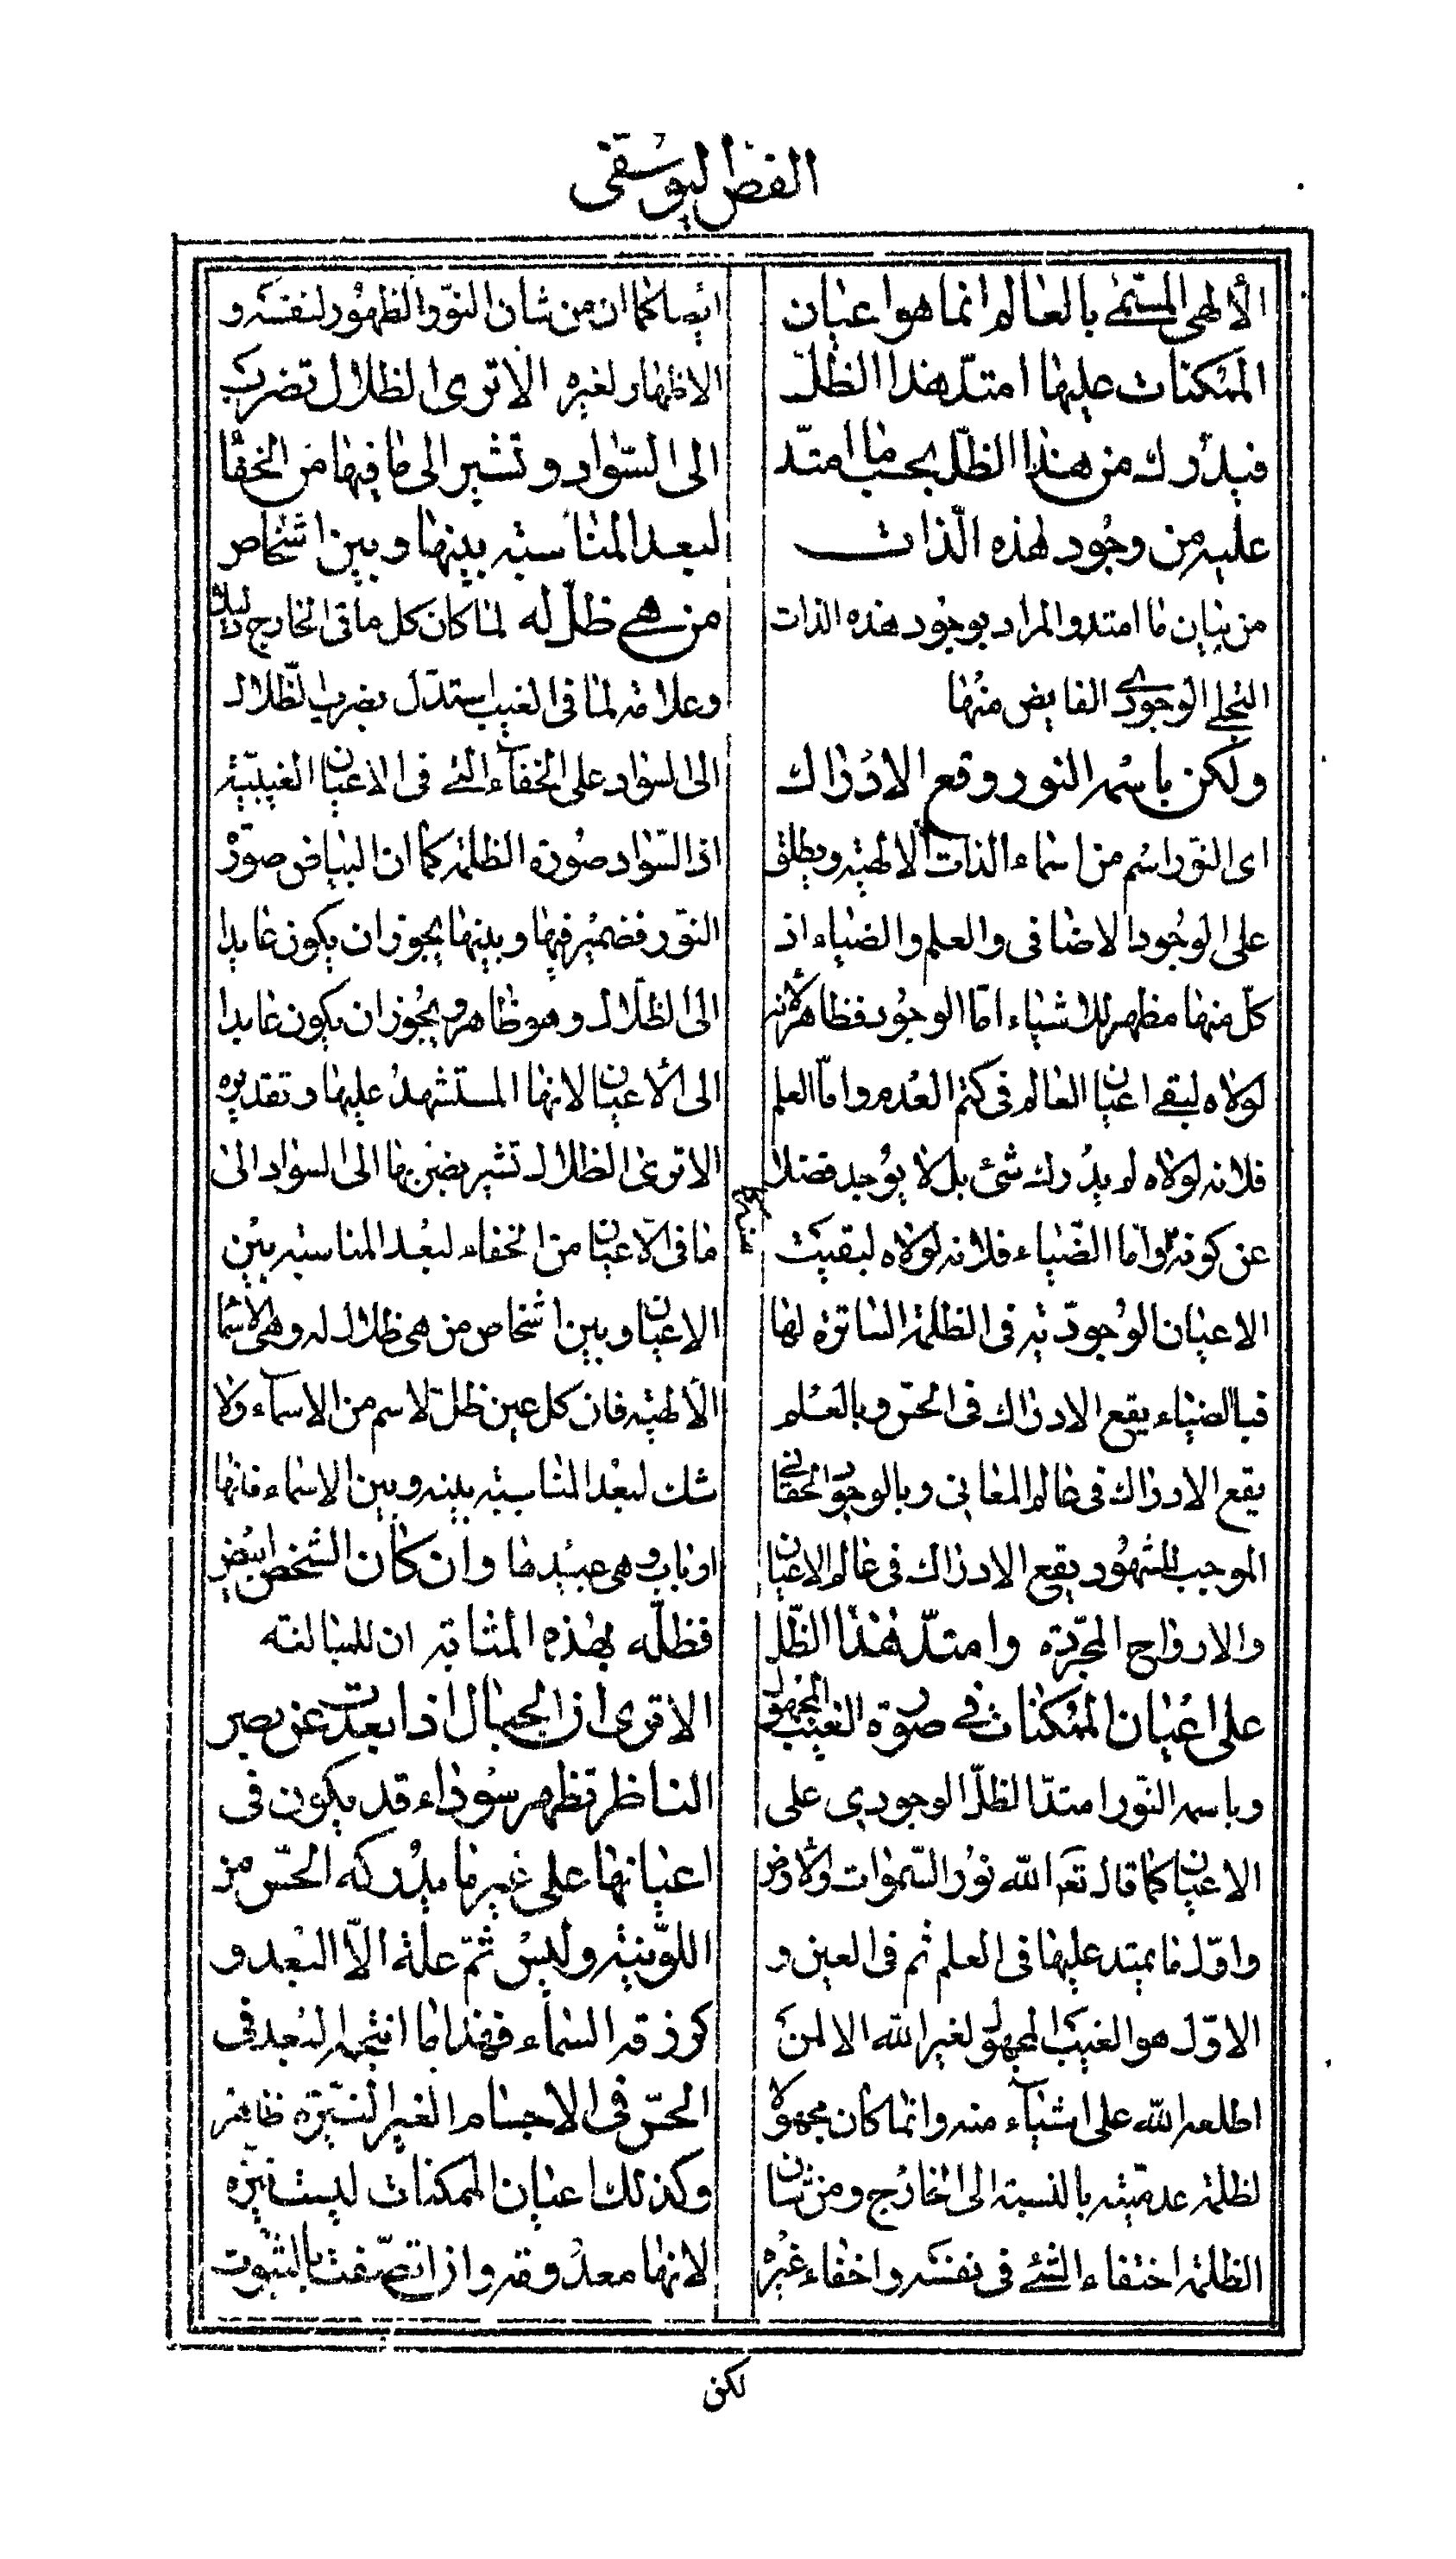 الفص اليوسفى
الألهى المسمّى بالعالم انما هو اعيان
الممكنات عليها امتدّ هذا الظلّ
فيدرك من هذا الظلّ بحسب ما امتدّ
عليه من وجود هذه الذات
من بيان ما امتد والمراد بوجود هذه الذات
التجلى الوجودى الفايض منها
ولكن باسمه النور وقع الادراك
اى النور اسم من اسماء الذات الالهية ويطلق
على الوجود الاضافى والعلم والضياء اذ
كلّ منها مظهر للاشياء امّا الوجود فظاهر لانه
لولاه لبقى اعيان العالم فى كتم العدم وامّا العلم
فلانه لولاه لم يدرك شئ بل لا يوجد فضلا
عن كونه وامّا الضّياء فلانه لولاه لبقيت
الاعيان الوجوديّة فى الظلمة الساترة لها
فبالضياء يقع الادراك فى الحسّ وبالعلم
يقع الادراك فى عالم المعانى وبالوجود الحقانى
الموجب للشهود يقع الادراك فى عالم الاعيان
والارواح المجرّدة وامتدّ هذا الظّلّ
على اعيان الممكنات فى صورة الغيب المجهول
وباسمه النّور امتدّ الظلّ الوجودى على
الاعيان كما قال تعم الله نور السّموات والأرض
واوّل ما يمتد عليها فى العلم ثم فى العين و
الاوّل هو الغيب المجهول لغير الله الا لمن
اطلعه الله على اشياء منه وانما كان مجهولا
لظلمة عدميّته بالنسبة الى الخارج ومن شان
الظلمة اختفاء الشئ فى نفسه واخفاء غيره
ايضا كما ان من شان النّور الظهور لنفسه و
الاظهار لغيره الا ترى الظلال تضرب
الى السّواد وتشير الى ما فيها من الخفا
لبعد المناسبة بينها وبين اشخاص
من هى ظلّ له لما كان كل ما فى الخارج دليلا
وعلامة لما فى الغيب استدلّ بضرب الظّلال
الى السواد على الخفآء الذى فى الاعيان الغيبيّة
اذ السّواد صورة الظلمة كما ان البياض صورة
النّور فضمير فيها وبينها يجوز ان يكون عايدا
الى الظّلال وهو ظاهر ويجوز ان يكون عايدا
الى الاعيان لانها المستشهد عليها وتقديره
الا ترى الظلال تشير بضربها الى السواد الى
ما فى الاعيان من الخفاء لبعد المناسبة بين
الاعيان وبين اشخاص من هى ظلال له وهى الاسما
الالهية فان كل عين ظلّ لاسم من الاسمآء ولا
شك لبعد المناسبة بينه وبين الاسماء فانها
ارباب وهى عبيدها وان كان الشخص ابيض
فظلّه بهذه المثابة ان للمبالغة
الا ترى ان الجبال اذا بعدت عن بصر
الناظر تظهر سوداء قد يكون فى
اعيانها على غير ما يدركه الحسّ من
اللّونية وليس ثمّ علة الّا البعد و
كزرقة السّماء فهذا ما انتجه البعد فى
الحسّ فى الاجسام الغير النيّرة ظاهر
وكذلك اعيان الممكنات ليست نيّرة
لانها معدومة وان اتّصفت بالثبوت
لكن